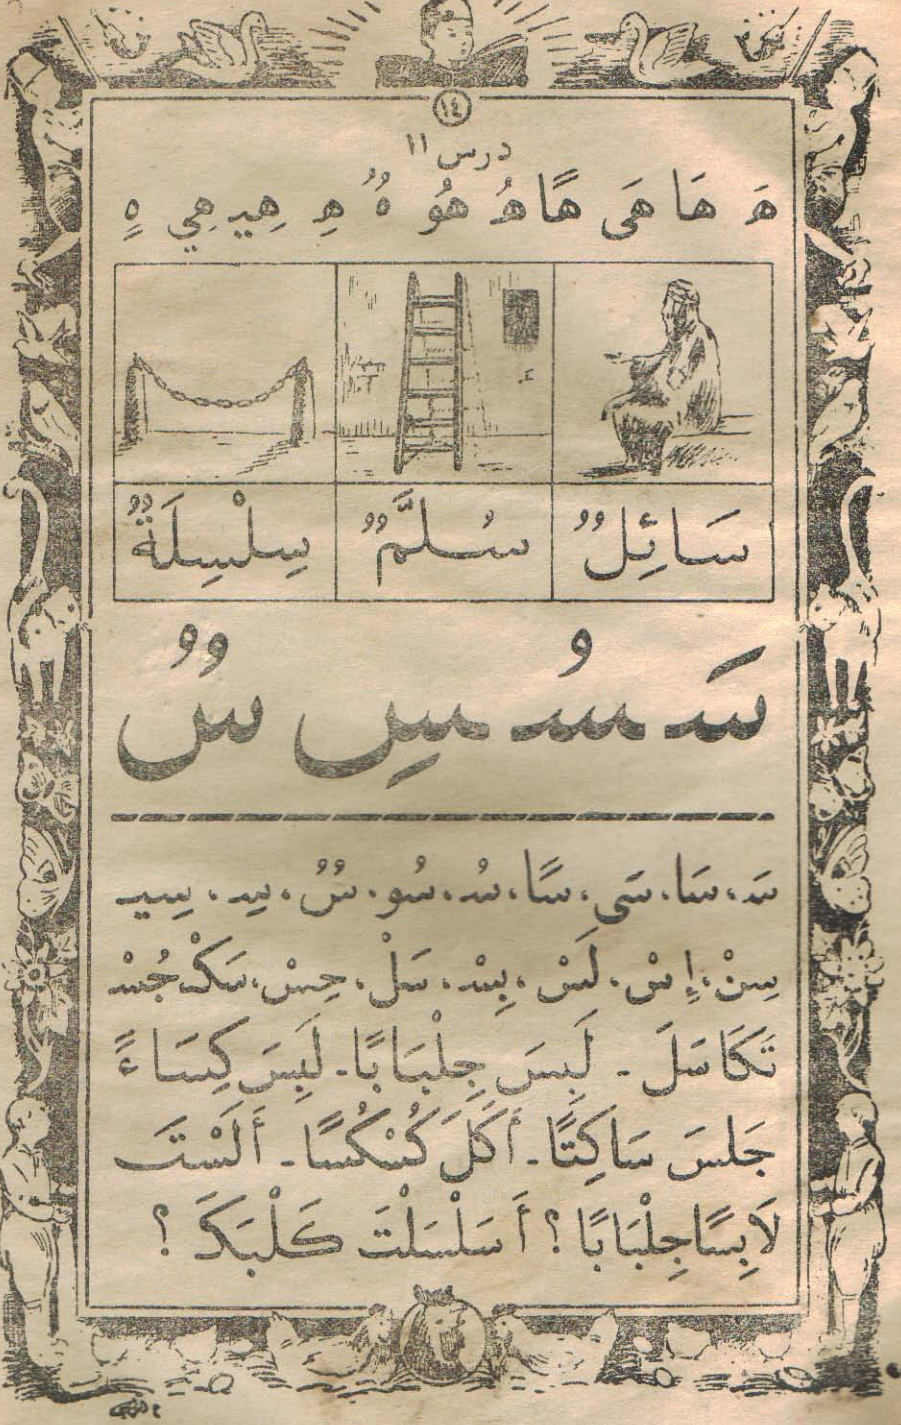 ١٤
درس ١١
هَ هَا هَى هًا هُ هُو هٌ هِ هِيـ هِي هٍ
سَائِلٌ سُلَّمٌ سِلْسِلَةٌ
سَـ ـسُـ ـسِ سٌ
سَـ، سَا، سَى، سًا، سُـ، سُو، سٌ، سِـ، سِيـ
سِنْ، إِسْ، لَسْ، بِسْـ، سَلْ، حِسْ، سَكْـ جُسْـ
تَكَاسَلَ - لَبِسَ جِلْبَابًا - لَبِسَ كِسَاءً
جَلَسَ سَاكِتًا - أَكَلَ كُسْكُسًا - أَلَسْتَ
لَابِسًا جِلْبَابًا؟ أَسَلْسَلْتَ كَلْبَكَ؟